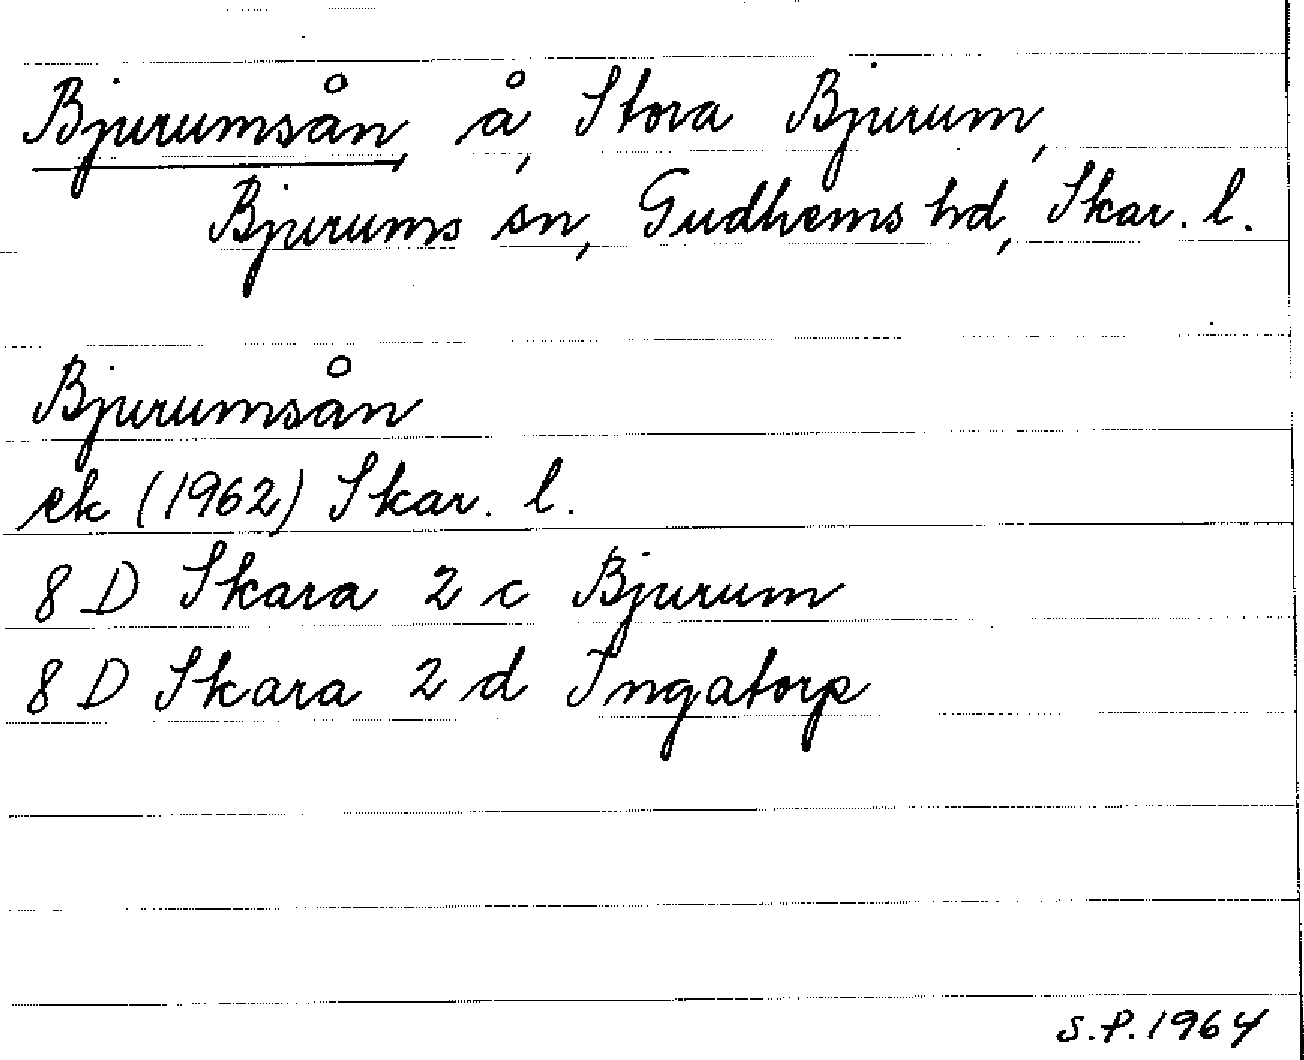 Bjurumsån, å, Stora Bjurum,
Bjurums sn, Gudhems hd, Skar. l.
Bjurumsån
ek (1962) Skar. l.
8 D Skara 2 c Bjurum
8 D Skara 2 d Ingatorp
S.P. 1964